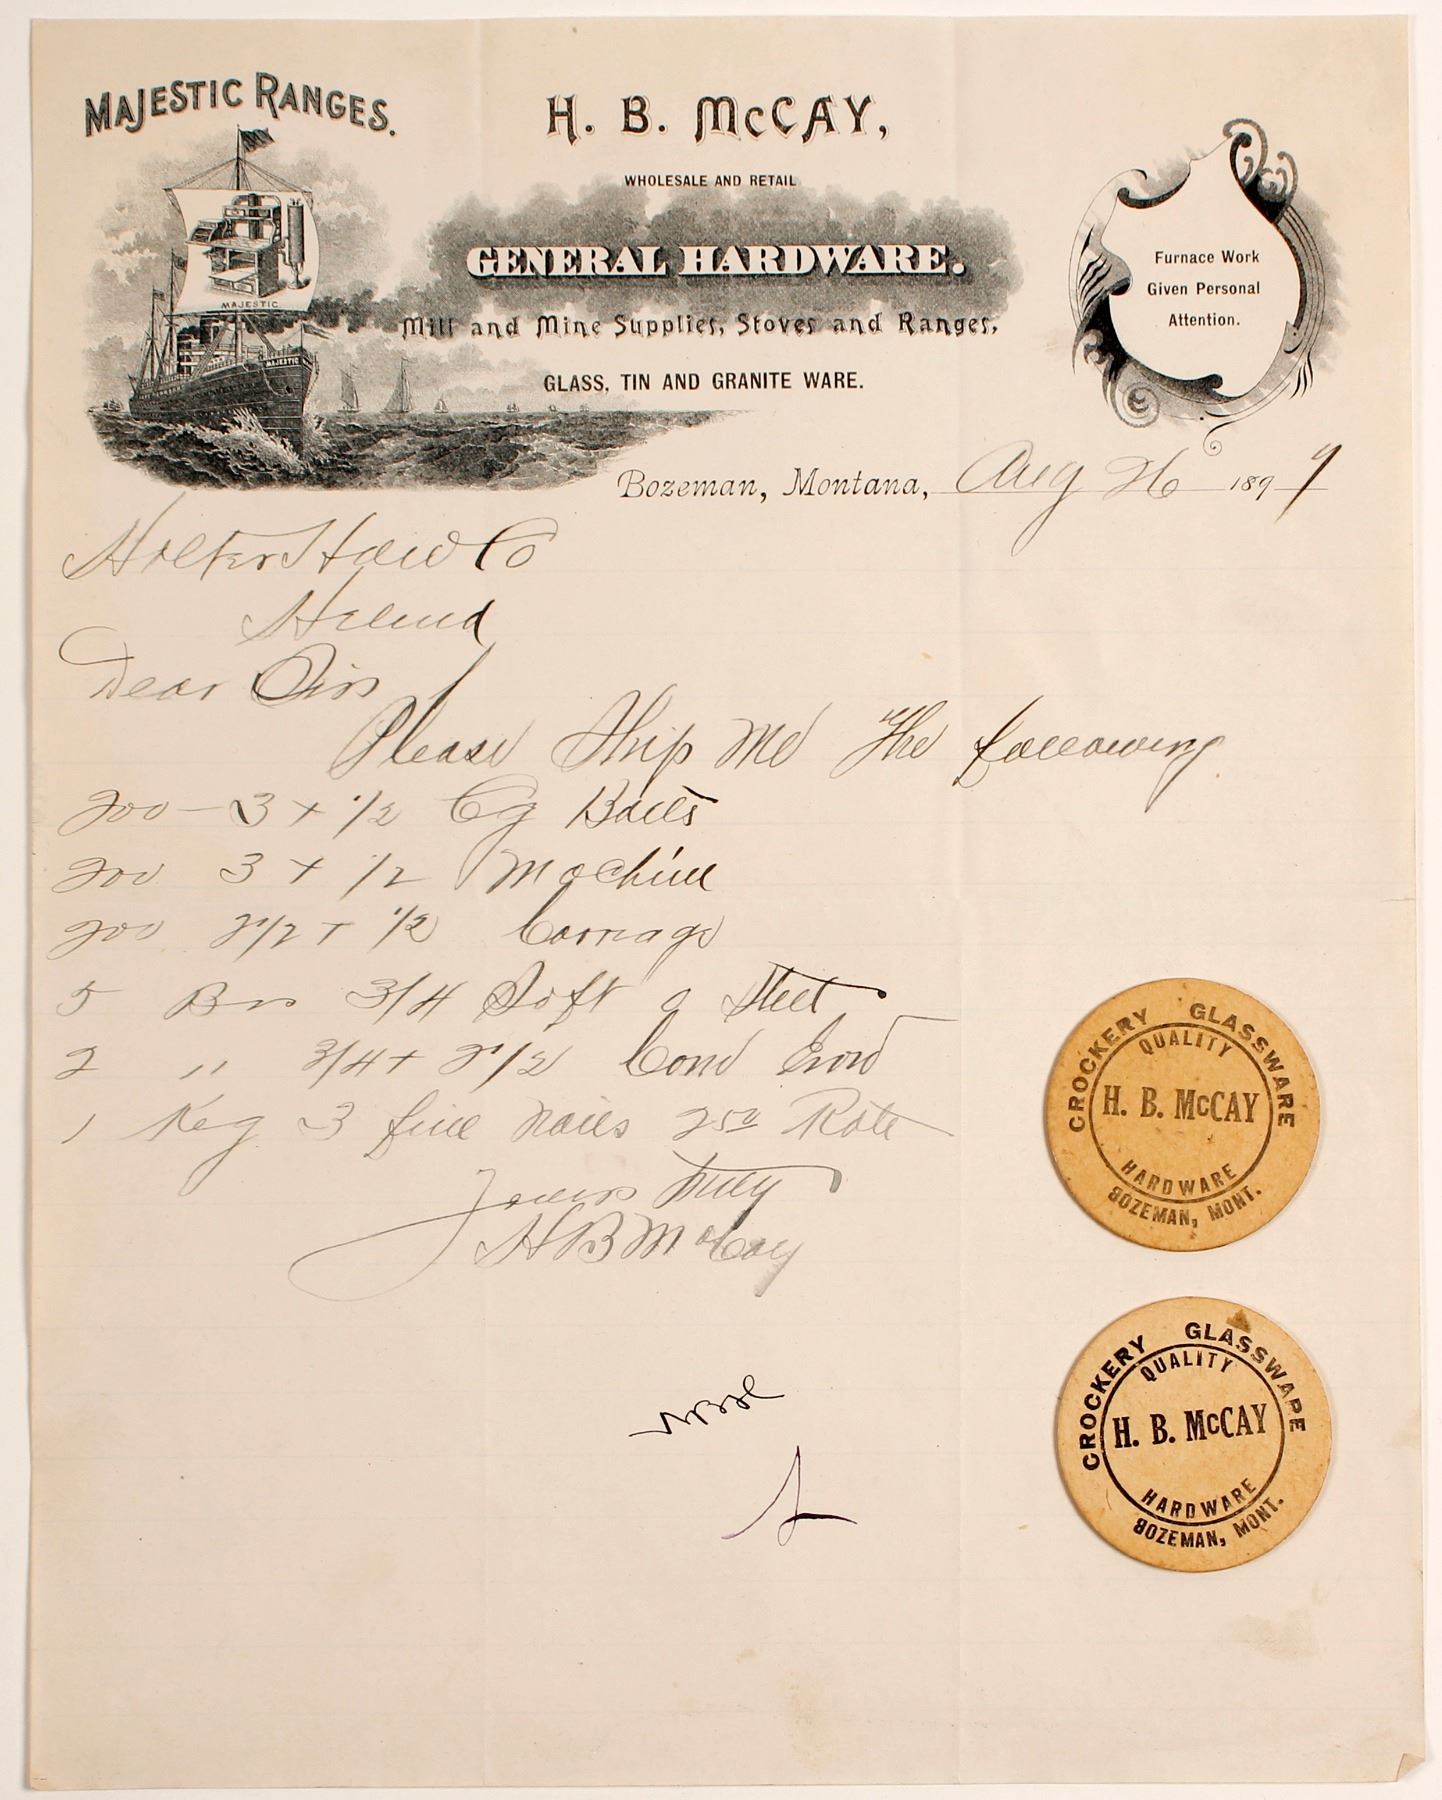 MAJESTIC RANGES.
MAJESTIC
MAJESTIC
H. B. McCAY,
WHOLESALE AND RETAIL
GENERAL HARDWARE.
Mill and Mine Supplies, Stoves and Ranges,
GLASS, TIN AND GRANITE WARE.
Furnace Work
Given Personal
Attention.
Bozeman, Montana, Aug 26 1899
Holter Hdw Co
Helena
Dear Sirs
Please Ship Me The following
200 - 3 x 1/2 Cg Bolts
200 3 x 1/2 Machine
200 2 1/2 x 1/2 Carriage
5 Brs 3/4 Soft Steel
2 " 3/4 x 2 1/2 Iron
1 Keg 3 fine nails 250 Rate
Yours Truly
H B McCay
CROCKERY GLASSWARE
QUALITY
H. B. McCAY
HARDWARE
BOZEMAN, MONT.
CROCKERY GLASSWARE
QUALITY
H. B. McCAY
HARDWARE
BOZEMAN, MONT.